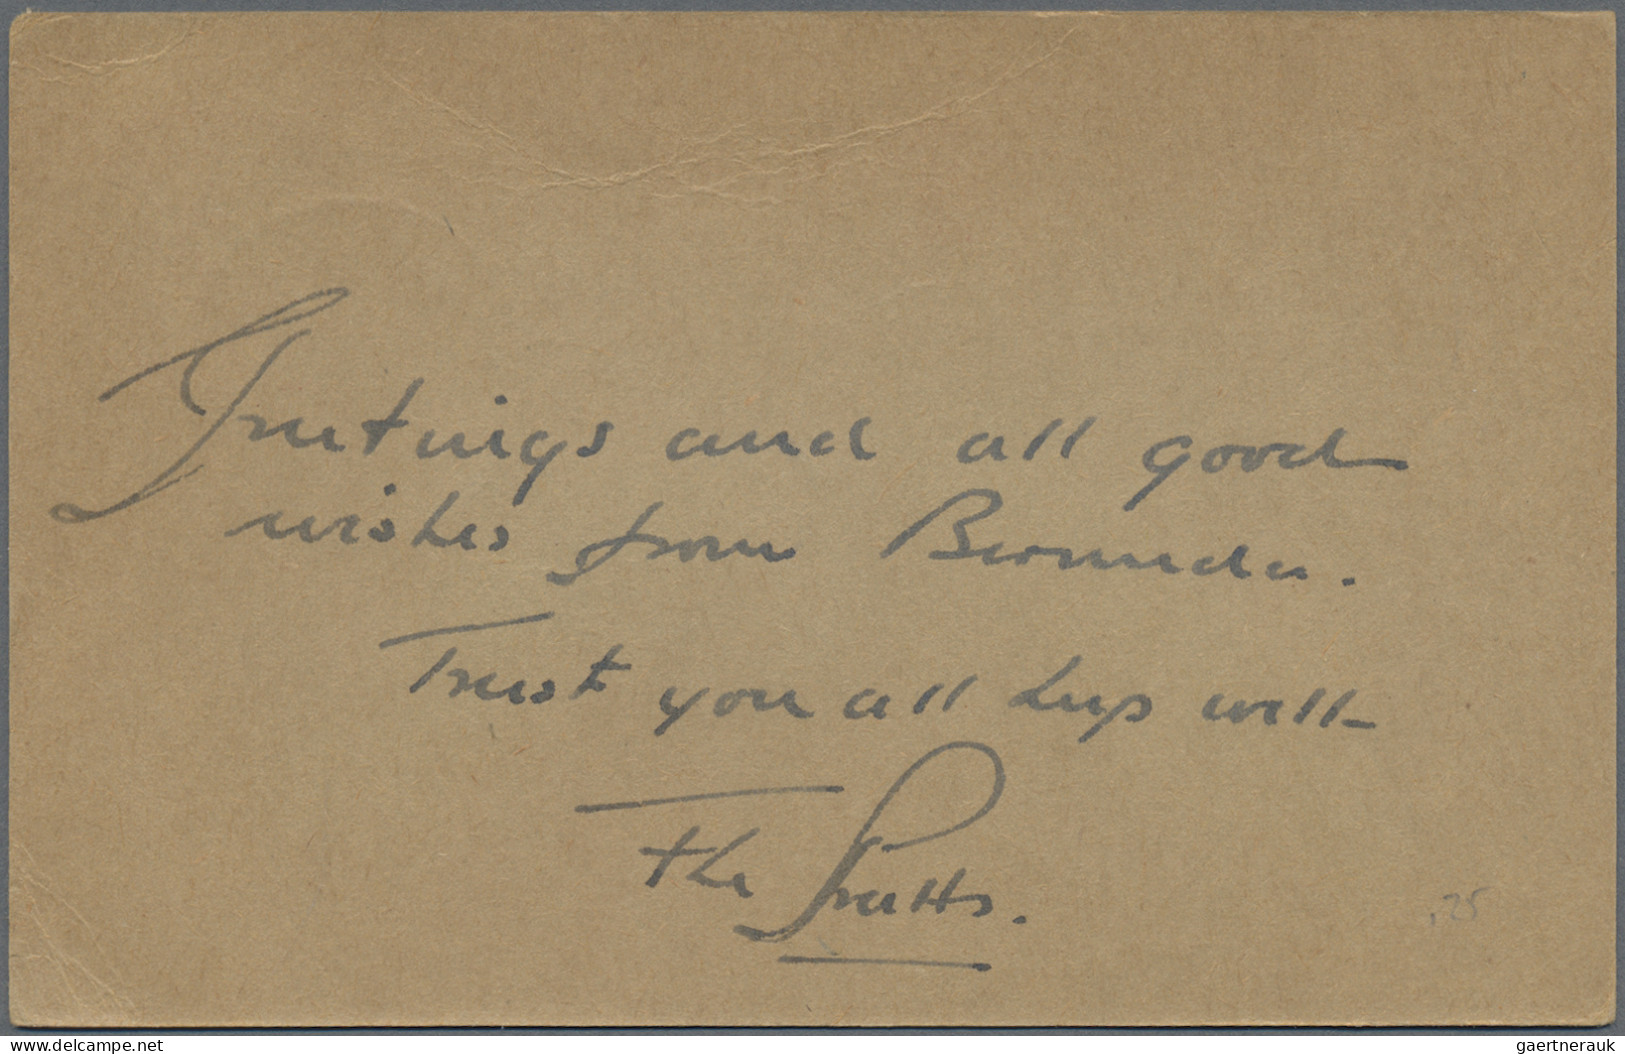 Greetings and all good
wishes from Bermuda.
Trust you all keep well–
The Pratts.
.75
www.delcampe.net
gaertnerauk